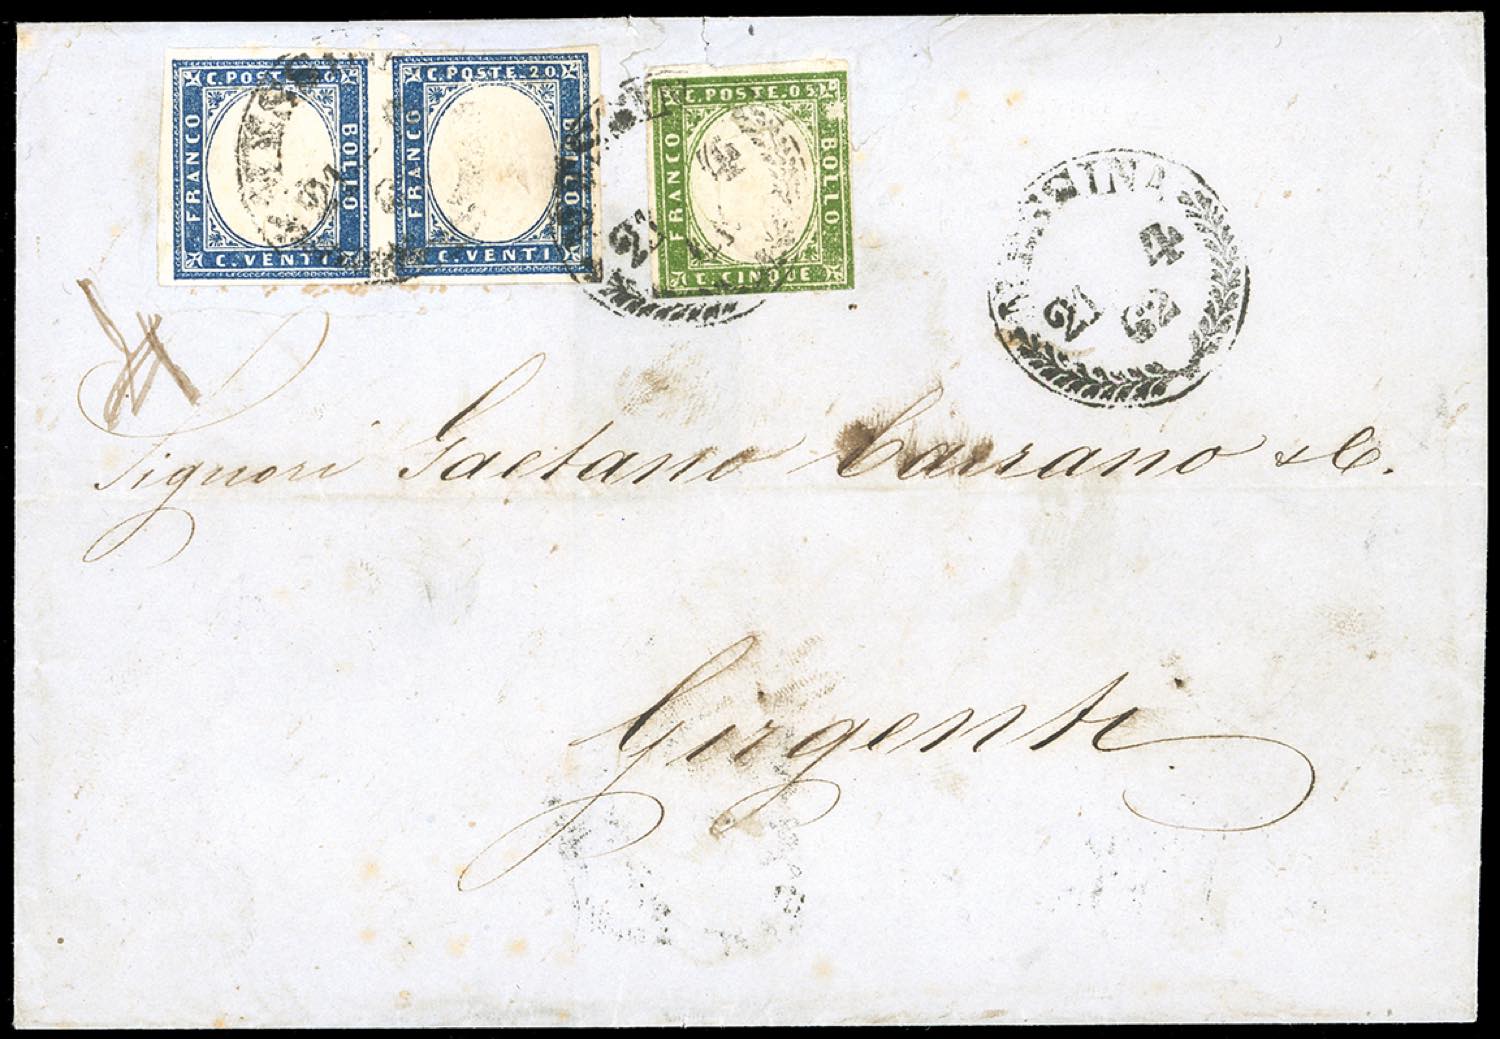 C. POSTE. 20
FRANCO
BOLLO
C. VENTI
C. POSTE. 20
FRANCO
BOLLO
C. VENTI
C. POSTE. 05
FRANCO
BOLLO
C. CINQUE
21 4
MESSINA
21 4 62
Signori Gaetano Carrano & C.
Girgenti